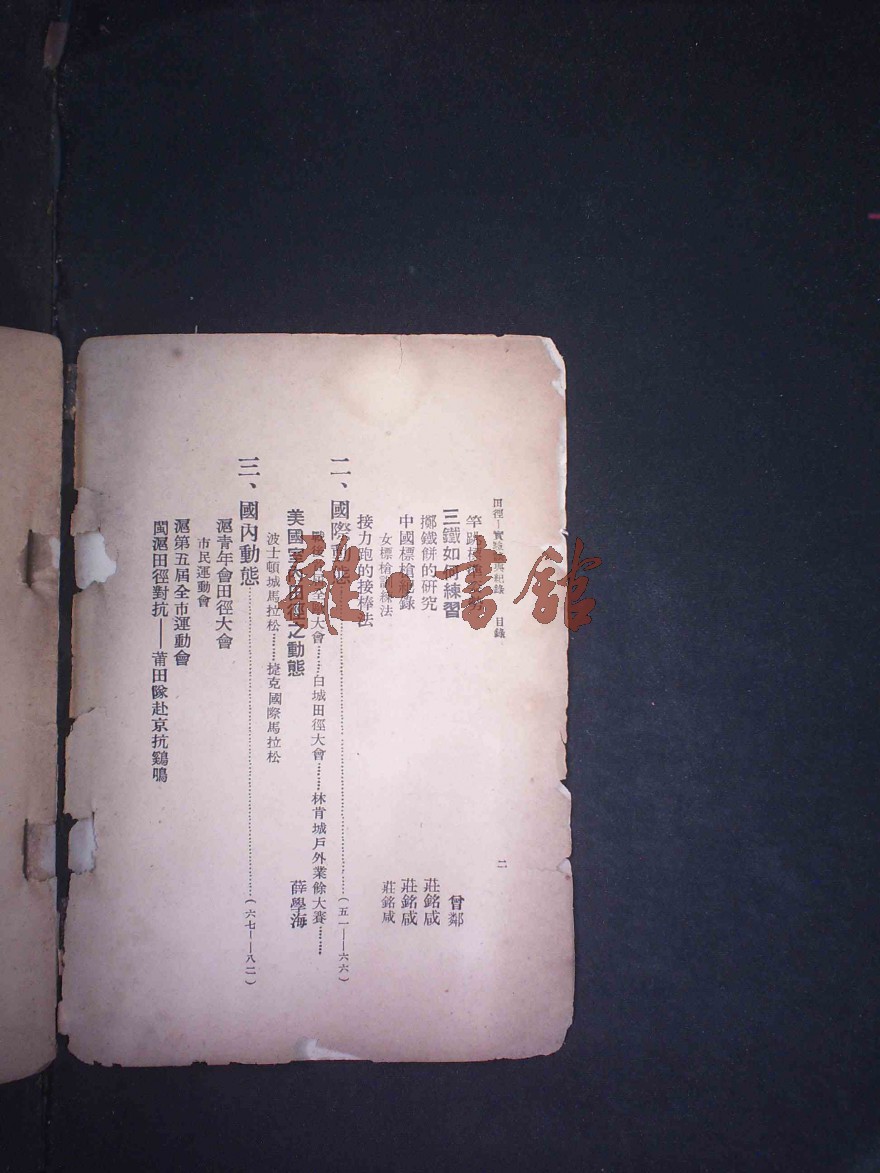 田徑—實驗與紀錄 目錄
二
竿跳
三鐵如何練習 曾鄰
擲鐵餅的研究 莊銘咸
中國標槍紀錄 莊銘咸
女標槍訓練法 莊銘咸
接力跑的接棒法
二、國際動態………(五一——六六)
大會………白城田徑大會………林肯城戶外業餘大賽………
美國室內田徑之動態 薛學海
波士頓城馬拉松………捷克國際馬拉松
三、國內動態………(六七——八二)
滬青年會田徑大會
市民運動會
滬第五屆全市運動會
閩滬田徑對抗——莆田隊赴京抗鷄鳴
雜·書館